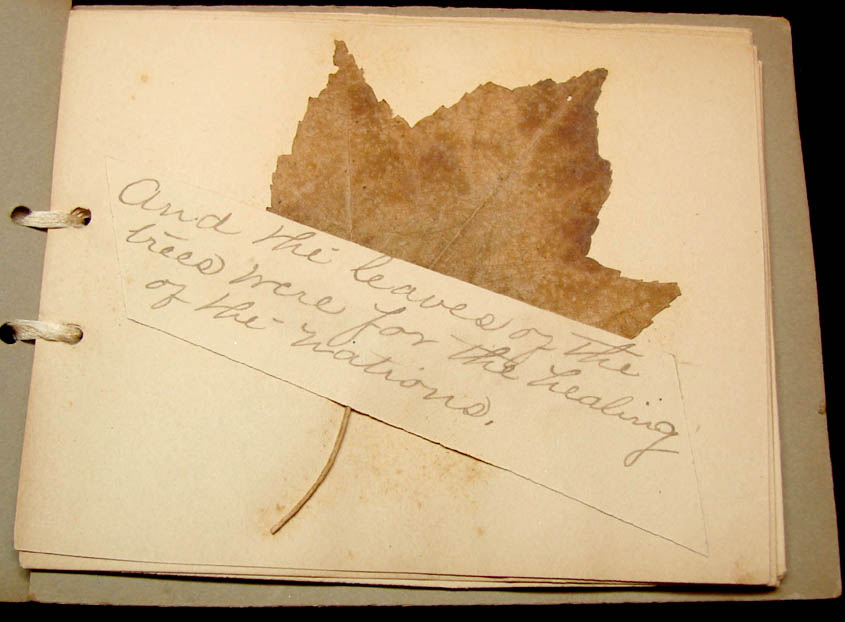 And the leaves of the
trees were for the healing
of the nations.